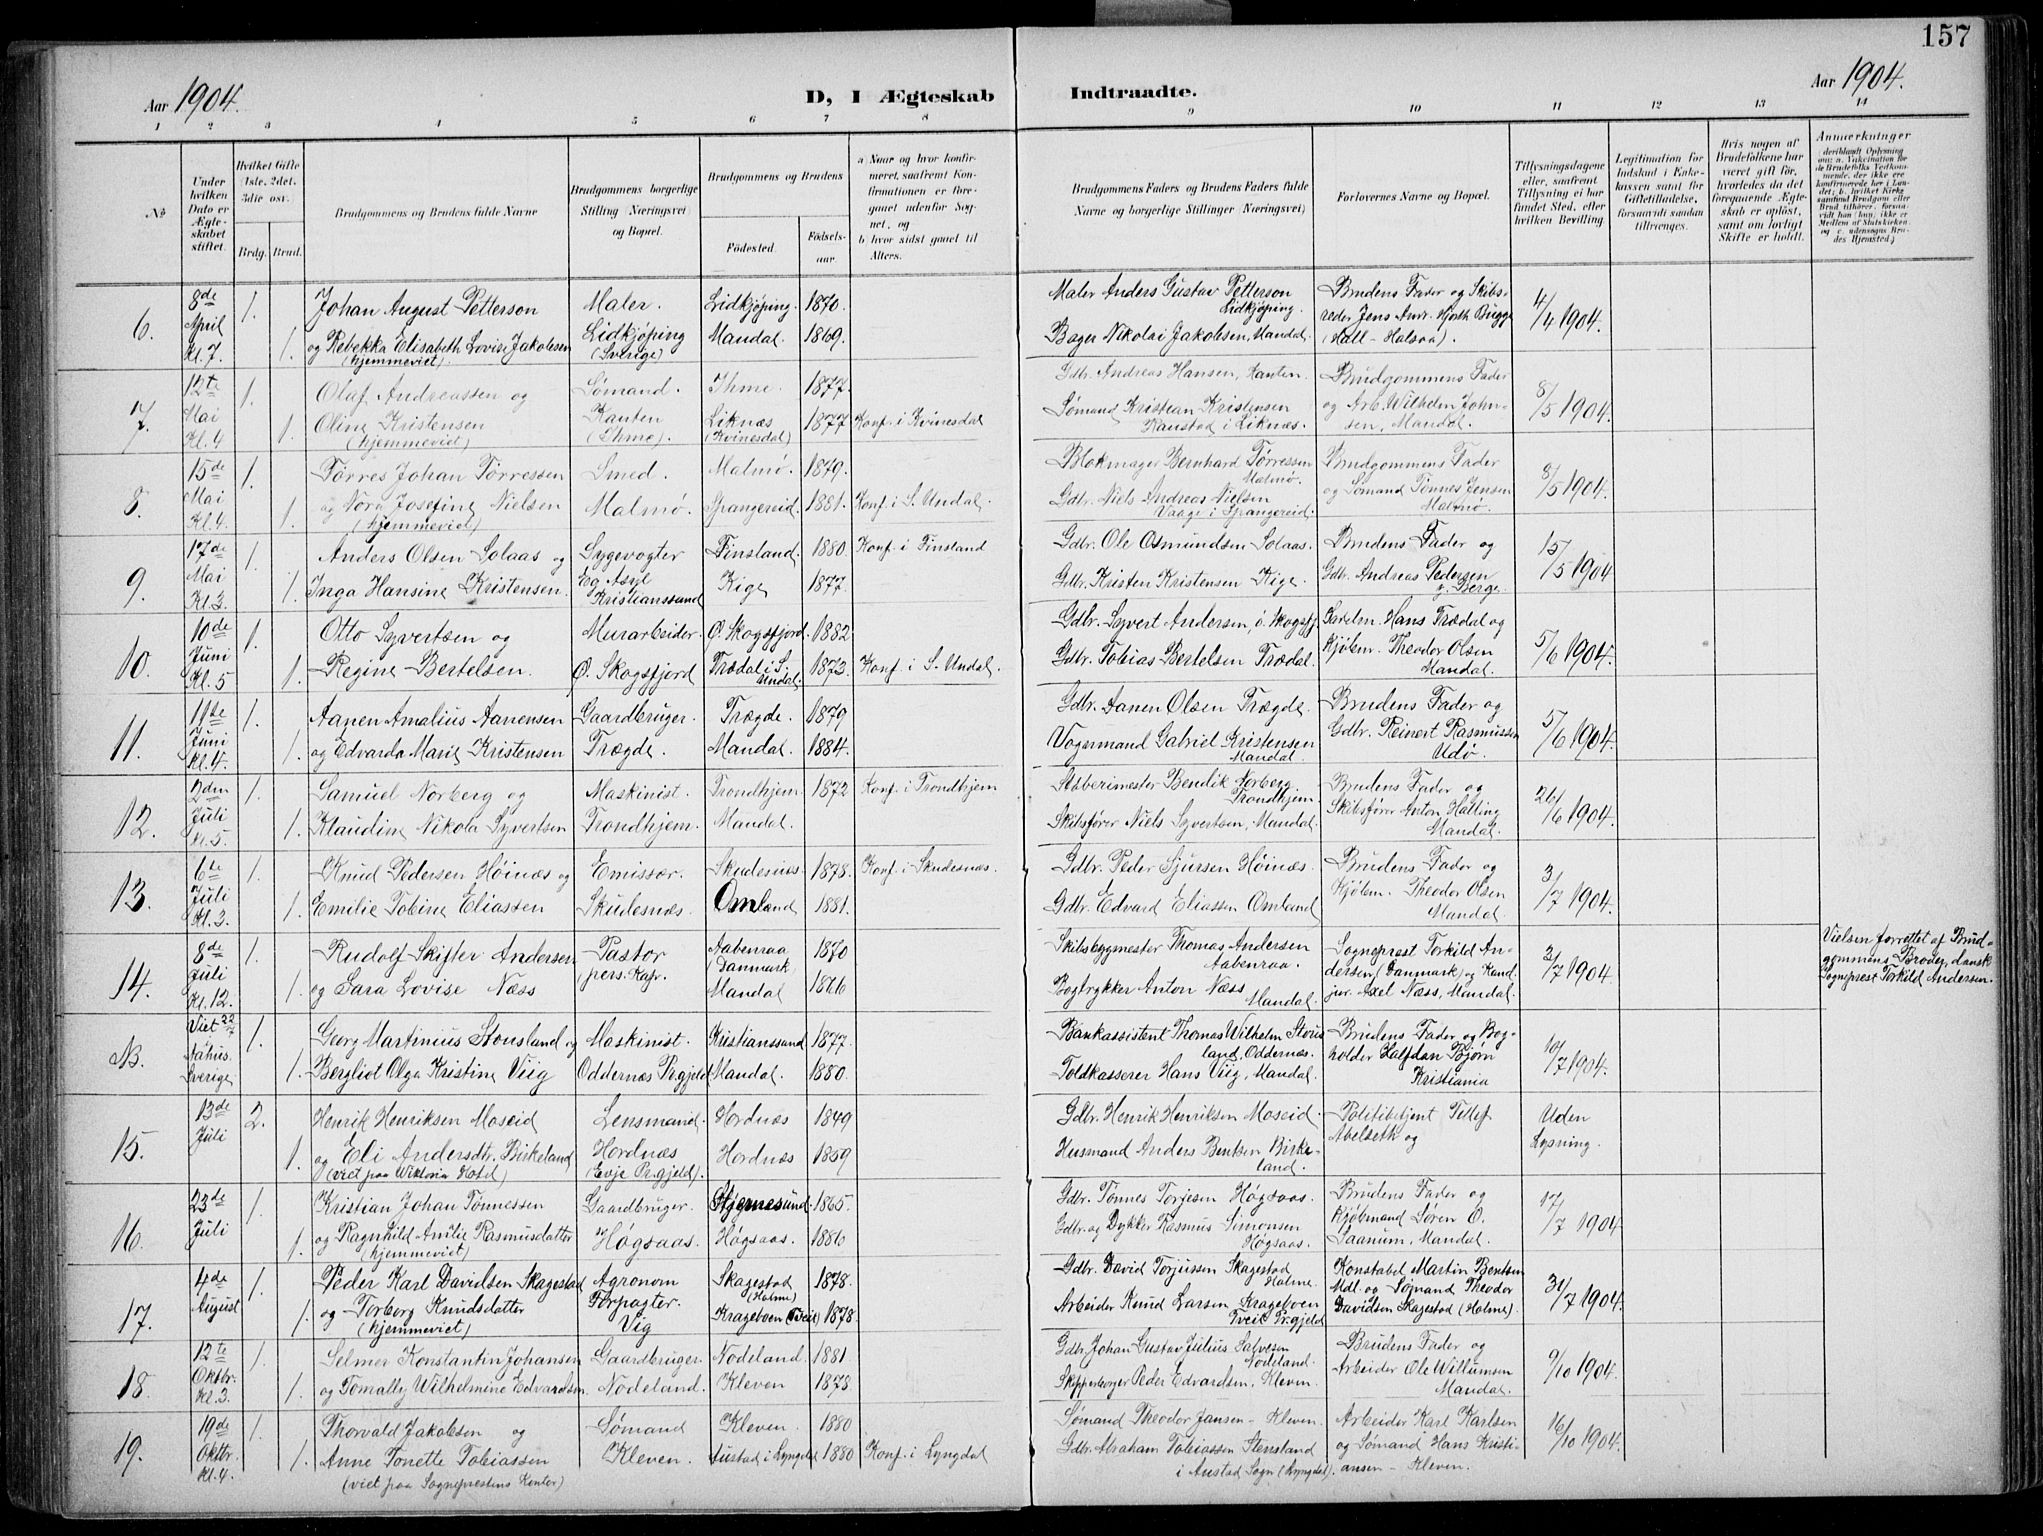 157
Aar 1904.
D, I Ægteskab Indtraadte.
Aar 1904.
1 2 3 4 5 6 7 8 9 10 11 12 13 14
No
Under hvilken Dato er Ægteskabet stiftet.
Hvilket Gifte 1ste, 2det, 3die osv.
Brdg. Brud.
Brudgommens og Brudens fulde Navne
Brudgommens borgerlige Stilling (Næringsvei) og Bopæl.
Brudgommens og Brudens
Födested. Födselsaar.
a Naar og hvor konfirmeret, saafremt Konfirmationen er foregaaet udenfor Sognet, og
b hvor sidst gaaet til Alters.
Brudgommens Faders og Brudens Faders fulde Navne og borgerlige Stillinger (Næringsvei)
Forlovernes Navne og Bopæl.
Tillysningsdagene eller, saafremt Tillysning ei har fundet Sted, efter hvilken Bevilling
Legitimation for Indskud i Enkekassen samt for Giftetilladelse, forsaavidt saadan tiltrænges.
Hvis nogen af Brudefolkene har været gift før, hvorledes da det foregaaende Ægteskab er oplöst, samt om lovligt Skifte er holdt.
Anmærkninger
6. 8de April Kl. 7. 1. 1.
Johan August Petterson Maler. Lidkjöping. 1870.
og Rebekka Elisabeth Lovise Jakobsen Lidkjöping Mandal. 1869.
(hjemmeviet) (Sverige)
Maler Anders Gustav Petterson Lidkjöping.
Bager Nikolai Jakobsen, Mandal.
Brudens Fader og Skibsreder Jens Andr. Hjorth Bugge (Hall - Halsaa).
4/4 1904.
7. 12te Mai Kl. 4 1. 1.
Olaf Andreassen og Sømand. Ihme. 1877.
Oline Kristensen Kanten Liknæs 1877 Konf. i Kvinesdal
(hjemmeviet) (Ihme). (Kvinesdal)
Gdbr. Andreas Hansen, Kanten.
Sømand Kristian Kristensen i Liknæs.
Brudgommens Fader og Arb. Wilhelm Johnsen, Mandal.
8/5 1904.
8. 15de Mai Kl. 4. 1. 1.
Tørres Johan Tørressen Smed. Malmø. 1879.
og Nora Josefine Nielsen Malmø. Spangereid. 1881. Konf. i S. Undal.
(hjemmeviet)
Blokmager Bernhard Tørressen Malmø.
Gdbr. Niels Andreas Nielsen Vaage i Spangereid.
Brudgommens Fader og Sømand Tønnes Jensen Malmø.
8/5 1904.
9. 17de Mai Kl. 3. 1. 1.
Anders Olsen Solaas og Sygevogter Finsland. 1880. Konf. i Finsland
Inga Hansine Kristensen. Eg Asyl Kristianssand Kige 1877.
Gdbr. Ole Osmundsen Solaas.
Gdbr. Kristen Kristensen Kige.
Brudens Fader og Gdbr. Andreas Pedersen Berge.
15/5 1904
10. 10de Juni Kl. 5 1. 1.
Otto Syvertsen og Murarbeider. Ø. Skogsfjord. 1882.
Regine Bertelsen. Ø. Skogsfjord Trædal i S. Undal. 1873. Konf. i S. Undal.
Gdbr. Syvert Andersen, ö. Skogsfj.
Gdbr. Tobias Bertelsen Trædal.
Hans Trædal og Kjöbm. Theodor Olsen Mandal.
5/6 1904.
11. 11te Juni Kl. 4. 1. 1.
Aanen Amalius Aanensen Gaardbruger. Trægde. 1879
og Edvarda Marie Kristensen Trægde. Mandal. 1884.
Gdbr. Aanen Olsen Trægde.
Vognmand Gabriel Kristensen Mandal.
Brudens Fader og Gdbr. Reinert Rasmussen Udø.
5/6 1904.
12. 2den Juli Kl. 5. 1. 1.
Samuel Norberg og Maskinist. Trondhjem. 1872 Konf. i Trondhjem
Klaudine Nikola Syvertsen Trondhjem. Mandal.
Støberimester Bendik Norberg Trondhjem.
Skibsfører Niels Syvertsen, Mandal.
Brudens Fader og Skibsfører Anton Halling Mandal.
26/6 1904.
13. 6te Juli Kl. 3. 1. 1.
Knud Pedersen Höinæs og Emissær. Skudesnæs. 1878. Konf. i Skudesnæs.
Emilie Tobine Eliassen Skudesnæs. Omland 1881.
Gdbr. Peder Sjursen Höinæs.
Gdbr. Edvard Eliassen Omland
Brudens Fader og Kjöbm. Theodor Olsen Mandal.
3/7 1904.
14. 8de Juli Kl. 12. 1. 1.
Rudolf Skifter Andersen Pastor Aabenraa Danmark 1870
og Sara Lovise Næss pers. Kap. Mandal 1866
Skibsbygmester Thomas Andersen Aabenraa.
Bogtrykker Anton Næss Mandal.
Sogneprest Torkild Andersen, (Danmark) og Kand. jur. Axel Næss, Mandal.
3/7 1904.
Vielsen forrettet af Brudgommens Broder, dansk Sogneprest Torkild Andersen.
NB. Viet 22/7 Sverige. 1. 1.
Georg Martinius Stousland og Maskinist. Kristianssand 1877.
Bergliot Olga Kristine Viig Oddernæs Pr.gjeld Mandal. 1880.
Bankassistent Thomas Wilhelm Stousland, Oddernæs.
Toldkasserer Hans Viig, Mandal.
Brudens Fader og Bogholder Halfdan Bjørn Kristiania
10/7 1904.
15. 13de Juli 2. 1.
Henrik Henriksen Moseid Lensmand. Hordnæs 1849
og Eli Andersdtr. Birkeland Hordnæs Hordnæs 1859
(viet paa Wiktoria Hotel) (Evje Pr.gjeld).
Gdbr. Henrik Henriksen Moseid.
Husmand Anders Bentsen Birkeland.
Politibetjent Tellef Abelseth og
Uden Lysning.
16. 23de Juli 1. 1.
Kristian Johan Tønnessen Gaardbruger. Stjernesund. 1865.
og Ragnhild Amilie Rasmusdatter Høgsaas. Høgsaas. 1886
(hjemmeviet)
Gdbr. Tønnes Torjesen Høgsaas.
Gdbr. og Dykker Rasmus Simonsen Høgsaas.
Brudens Fader og Kjöbmand Søren O. Saanum, Mandal.
17/7 1904
17. 4de August 1. 1.
Peder Karl Davidsen Skagestad Agronom Skagestad (Holme) 1878.
og Torborg Knudsdatter Forpagter. Vig Krageboen (Tveit) 1878.
(hjemmeviet)
Gdbr. David Torjussen Skagestad Holme.
Arbeider Knud Larsen Krageboen Tveit Pr.gjeld
Konstabel Martin Bentsen Mdl. og Sømand Theodor Davidsen Skagestad (Holme).
31/7 1904.
18. 12te Oktbr. Kl. 3. 1. 1.
Selmer Konstantin Johansen Gaardbruger. Nodeland. 1881
og Tomally Wilhelmine Edvardsen Nodeland. Kleven 1878.
Gdbr Johan Gustav Julius Salvesen Nodeland.
Peder Edvardsen, Kleven.
Brudens Fader og Arbeider Ole Willumsen Mandal.
9/10 1904.
19. 19de Oktbr. Kl. 4. 1. 1.
Thorvald Jakobsen og Sømand Kleven. 1880
Anne Tonette Tobiassen Kleven. Austad i Lyngdal 1880 Konf. i Lyngdal
(viet paa Sogneprestens Kontor)
Sømand Theodor Jansen - Kleven.
Gdbr. Abraham Tobiassen Stensland i Austad Sogn (Lyngdal).
Arbeider Karl Karlsen og Sømand Hans Kristiansen - Kleven.
16/10 1904.